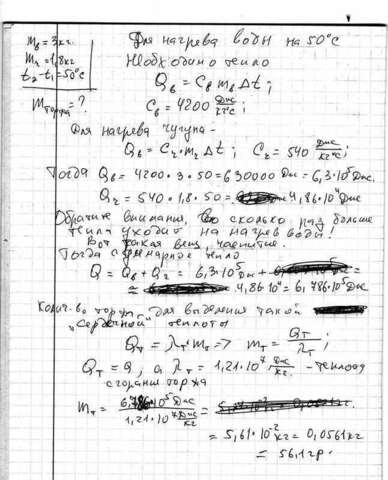 mв = 3 кг.
mч = 1,8 кг
t₂ - t₁ = 50°C
mторфа = ?
Для нагрева воды на 50°C
Необходимо тепло
Qв = Cв mв Δt ;
Cв = 4200 Дж/кг°C ;
Для нагрева чугуна -
Qв = Cч · mч Δt ; Cч = 540 Дж/кг°C ;
Тогда Qв = 4200 · 3 · 50 = 630000 Дж = 6,3 · 10⁵ Дж.
Qч = 540 · 1,8 · 50 = 4,86 · 10⁴ Дж.
Обратите внимания, во сколько раз больше
тепла уходит на нагрев воды!
Вот такая вещ, чаепитие.
Тогда суммарное тепло
Q = Qв + Qч = 6,3 · 10⁵ Дж +
4,86 · 10⁴ = 6,786 · 10⁵ Дж.
Колич-во торфа, для выделения такой
"Сердечной" теплоты
Qт = λт · mт => mт = Qт/λт ;
Qт = Q, а λт = 1,21 · 10⁷ Дж/кг - теплота
сгорания торфа
mт = 6,786 · 10⁵ Дж / 1,21 · 10⁷ Дж/кг =
= 5,61 · 10⁻² кг = 0,0561 кг
= 56,1 гр.